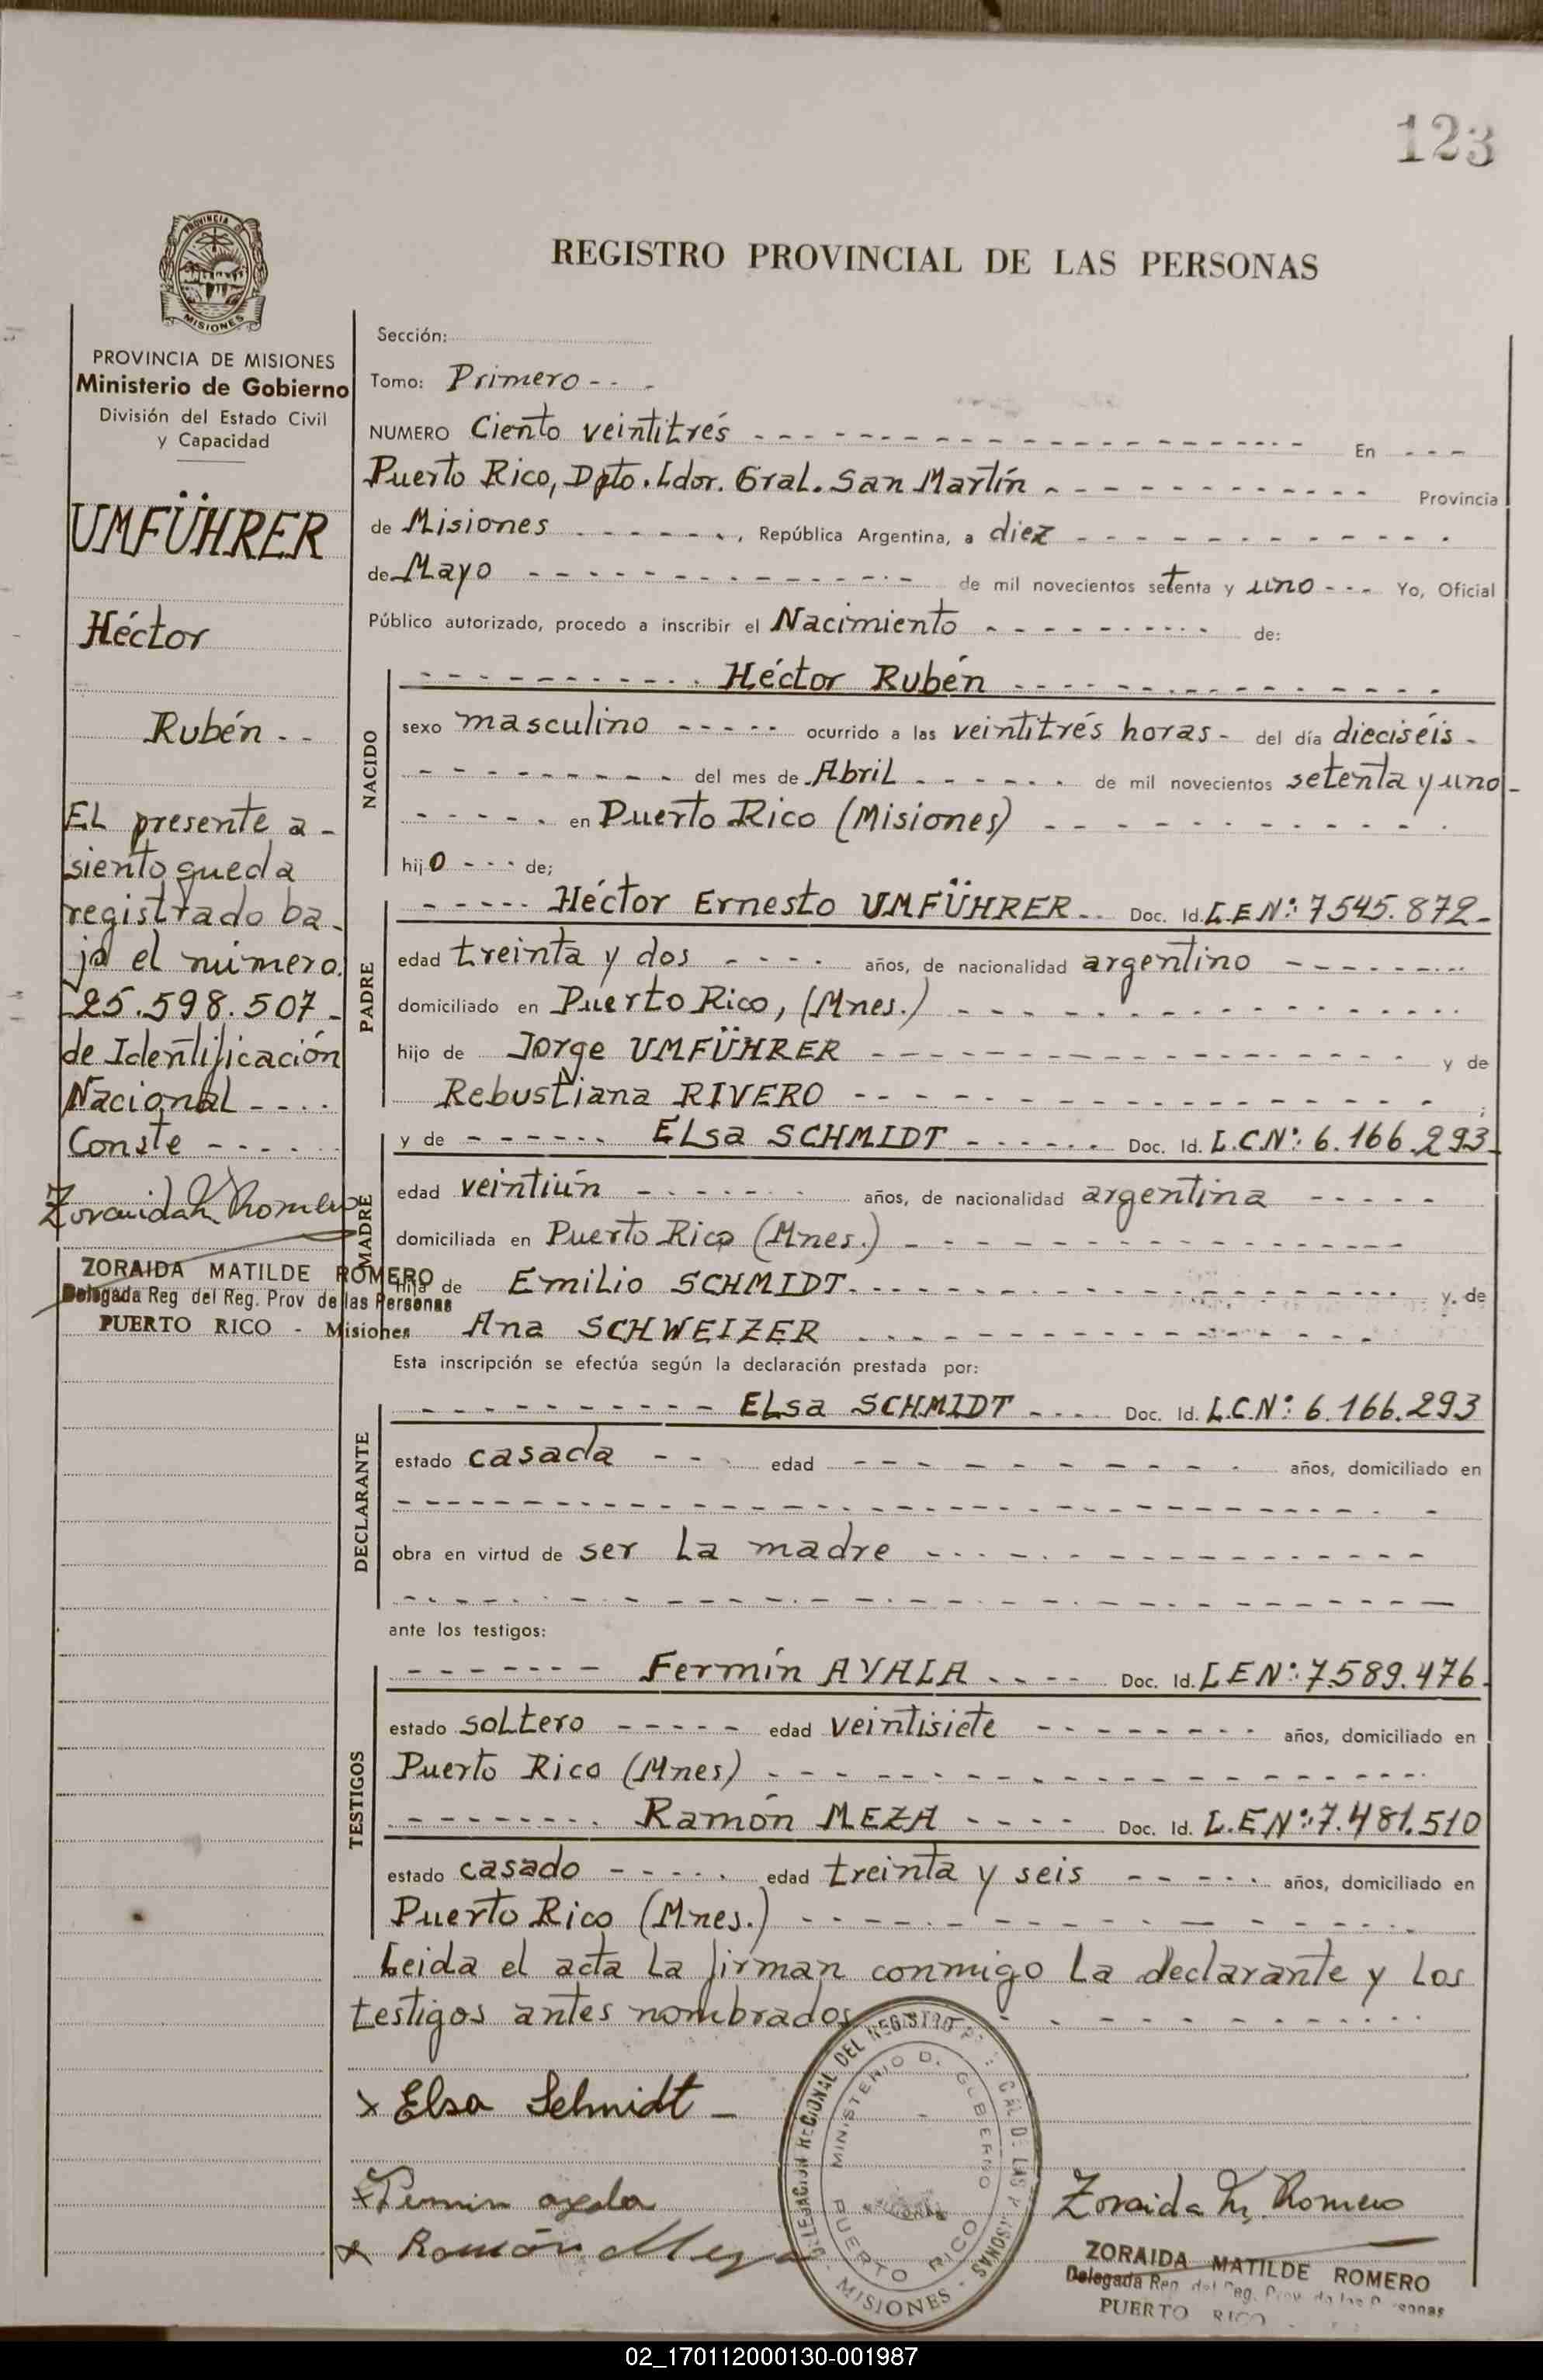 123
PROVINCIA DE
MISIONES
REGISTRO PROVINCIAL DE LAS PERSONAS
PROVINCIA DE MISIONES
Ministerio de Gobierno
División del Estado Civil
y Capacidad
UMFÜHRER
Héctor
Rubén - -
EL presente a-
siento queda
registrado ba-
jo el número
25.598.507-
de Identificación
Nacional - - - -
Conste - - - - -
Zoraida M. Romero
ZORAIDA MATILDE ROMERO
Delegada Reg del Reg. Prov de las Personas
PUERTO RICO - Misiones
Sección:
Tomo: Primero - - -
NUMERO Ciento veintitrés - - - En - - -
Puerto Rico, Dpto. Ldor. Gral. San Martín - - - Provincia
de Misiones - - - , República Argentina, a diez - - -
de Mayo - - - de mil novecientos setenta y uno - - - Yo, Oficial
Público autorizado, procedo a inscribir el Nacimiento - - - de:
NACIDO
- - - Héctor Rubén - - -
sexo masculino - - - ocurrido a las veintitrés horas - del día dieciséis -
- - - del mes de Abril - - - de mil novecientos setenta y uno -
- - - en Puerto Rico (Misiones) - - -
hijo - - - de;
PADRE
- - - Héctor Ernesto UMFÜHRER - - Doc. Id. L.E.Nº: 7545.872-
edad treinta y dos - - - años, de nacionalidad argentino - - -
domiciliado en Puerto Rico, (Mnes.) - - -
hijo de Jorge UMFÜHRER - - - y de
Rebustiana RIVERO - - - ;
MADRE
y de - - - ELsa SCHMIDT - - - Doc. Id. L.C.Nº: 6.166.293-
edad veintiún - - - años, de nacionalidad argentina - - -
domiciliada en Puerto Rico (Mnes.) - - -
hija de Emilio SCHMIDT - - - y de
Ana SCHWEIZER - - -
Esta inscripción se efectúa según la declaración prestada por:
DECLARANTE
- - - ELsa SCHMIDT - - - Doc. Id. L.C.Nº: 6.166.293
estado casada - - - edad - - - años, domiciliado en
- - -
obra en virtud de ser La madre - - -
- - -
ante los testigos:
TESTIGOS
- - - Fermín AYALA - - - Doc. Id. L.E.Nº: 7.589.476-
estado soltero - - - edad veintisiete - - - años, domiciliado en
Puerto Rico (Mnes) - - -
- - - Ramón MEZA - - - Doc. Id. L.E.Nº: 7.481.510
estado casado - - - edad treinta y seis - - - años, domiciliado en
Puerto Rico (Mnes.) - - -
Leida el acta La firman conmigo La declarante y Los
testigos antes nombrados - - -
x Elsa Schmidt -
x Fermin ayala
x Ramón Meza
DELEGACION REGIONAL DEL REGISTRO PROVINCIAL DE LAS PERSONAS
MINISTERIO D. GOBIERNO
PUERTO RICO
- MISIONES -
Zoraida M. Romero
ZORAIDA MATILDE ROMERO
Delegada Reg del Reg. Prov de las Personas
PUERTO RICO
02_170112000130-001987